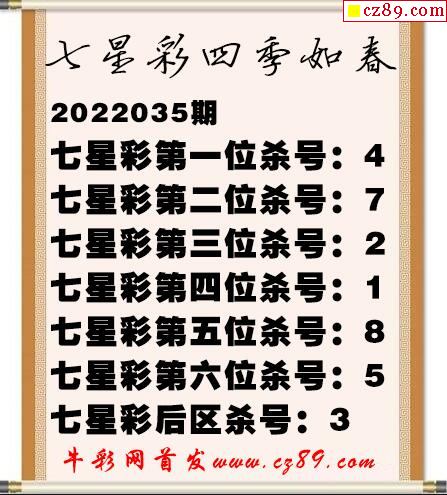 cz89.com
七星彩四季如春
2022035期
七星彩第一位杀号：4
七星彩第二位杀号：7
七星彩第三位杀号：2
七星彩第四位杀号：1
七星彩第五位杀号：8
七星彩第六位杀号：5
七星彩后区杀号：3
牛彩网首发www.cz89.com